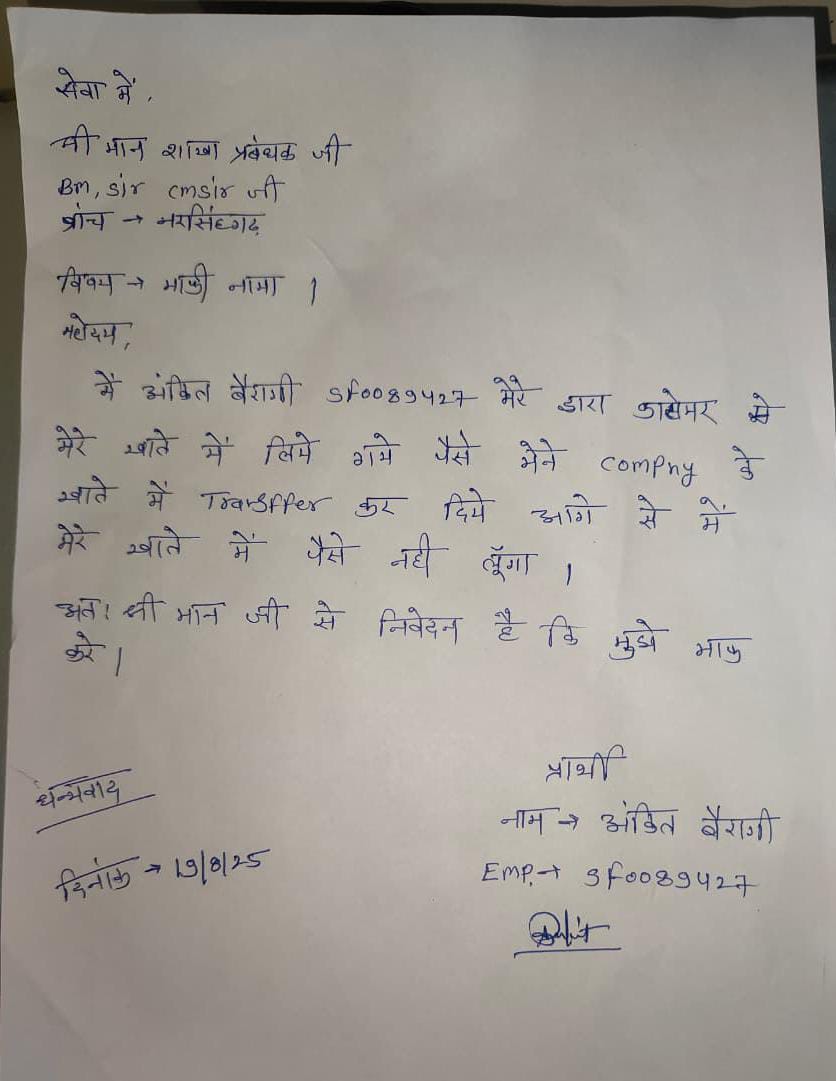 सेवा में,
श्री मान शाखा प्रबंधक जी
Bm, sir cmsir जी
ब्रांच → नरसिंहगढ़
विषय → माफी नामा ।
महोदय,
में अंकित बैरागी Sf0089427 मेरे द्वारा कस्टोमर से
मेरे खाते में लिये गये पैसे मेने compny के
खाते में Transffer कर दिये आगे से में
मेरे खाते में पैसे नही लूँगा ।
अतः श्री मान जी से निवेदन है कि मुझे माफ
करे ।
प्रार्थी
धन्यवाद
नाम → अंकित बैरागी
दिनांक → 19/8/25
EMP. → Sf0089427
Ankit